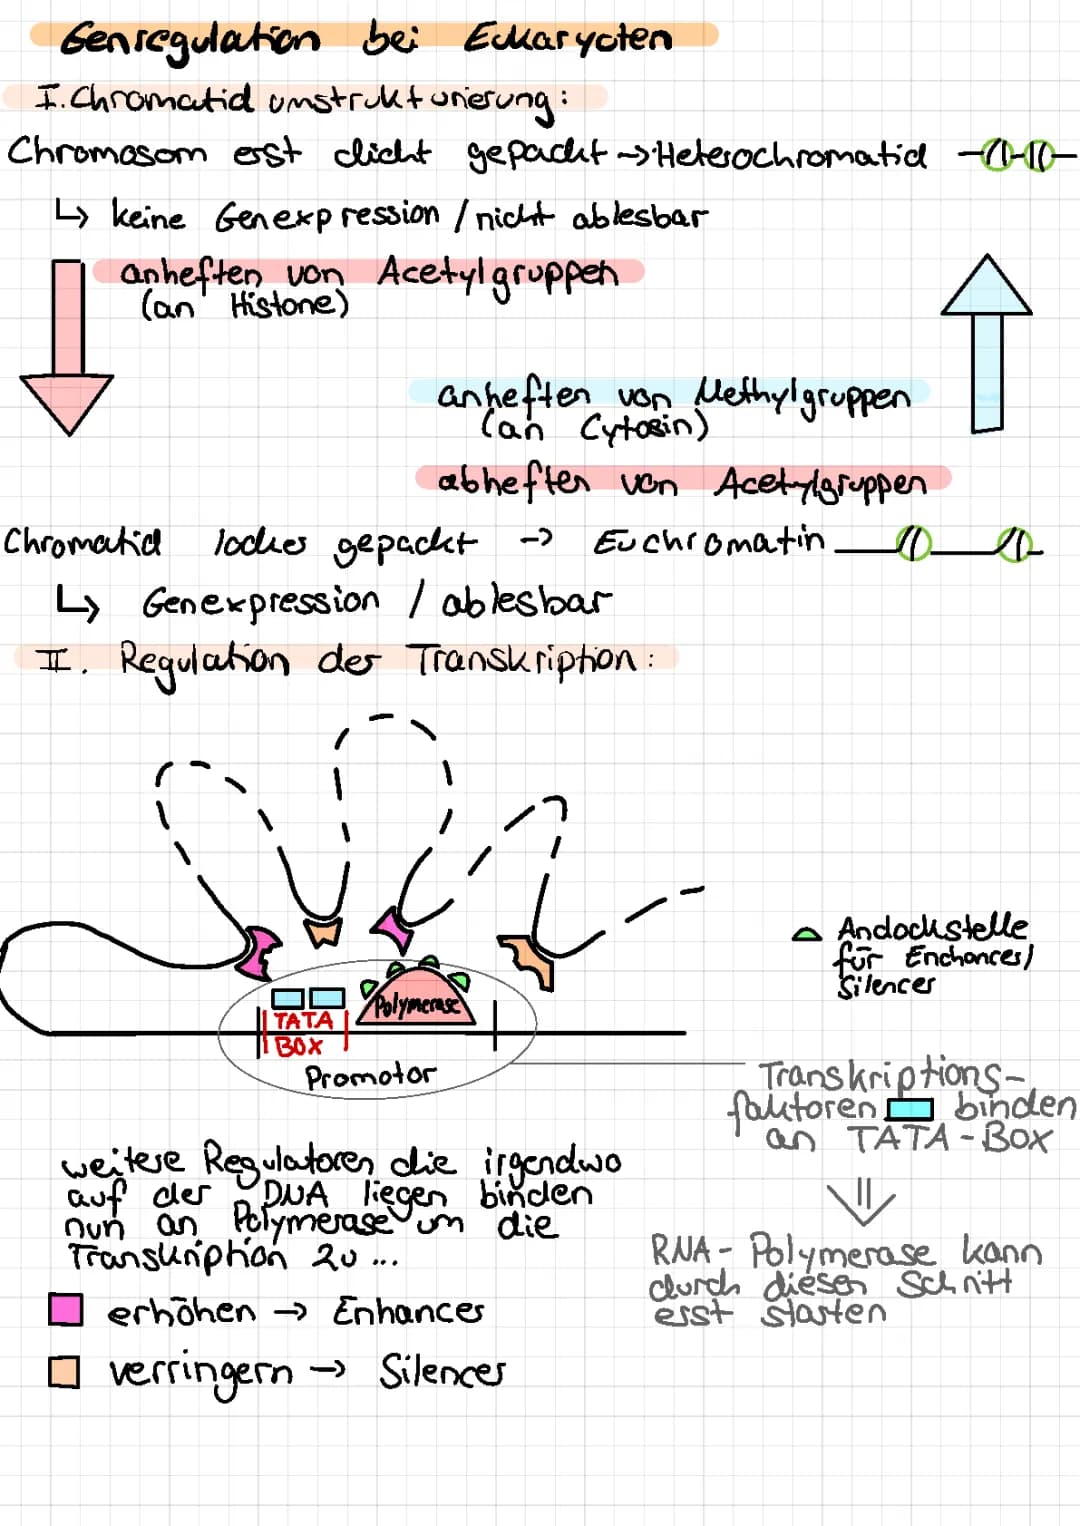 Genregulation bei Eukaryoten
I. Chromatid umstrukturierung:
Chromosom erst dicht gepackt → Heterochromatid
↳ keine Genexpression / nicht ablesbar
anheften von Acetylgruppen
(an Histone)
anheften von Methylgruppen
(an Cytosin)
abheften von Acetylgruppen
Chromatid locker gepackt → Euchromatin
↳ Genexpression / ablesbar
II. Regulation der Transkription:
Andockstelle
für Enchancer/
Silencer
Polymerase
TATA
BOX
Promotor
Transkriptions-
faktoren binden
an TATA-BOX
weitere Regulatoren die irgendwo
auf der DNA liegen binden
nun an Polymerase um die
Transkription zu ...
⇓
RNA- Polymerase kann
durch diesen Schritt
erst starten
erhöhen → Enhancer
verringern → Silencer